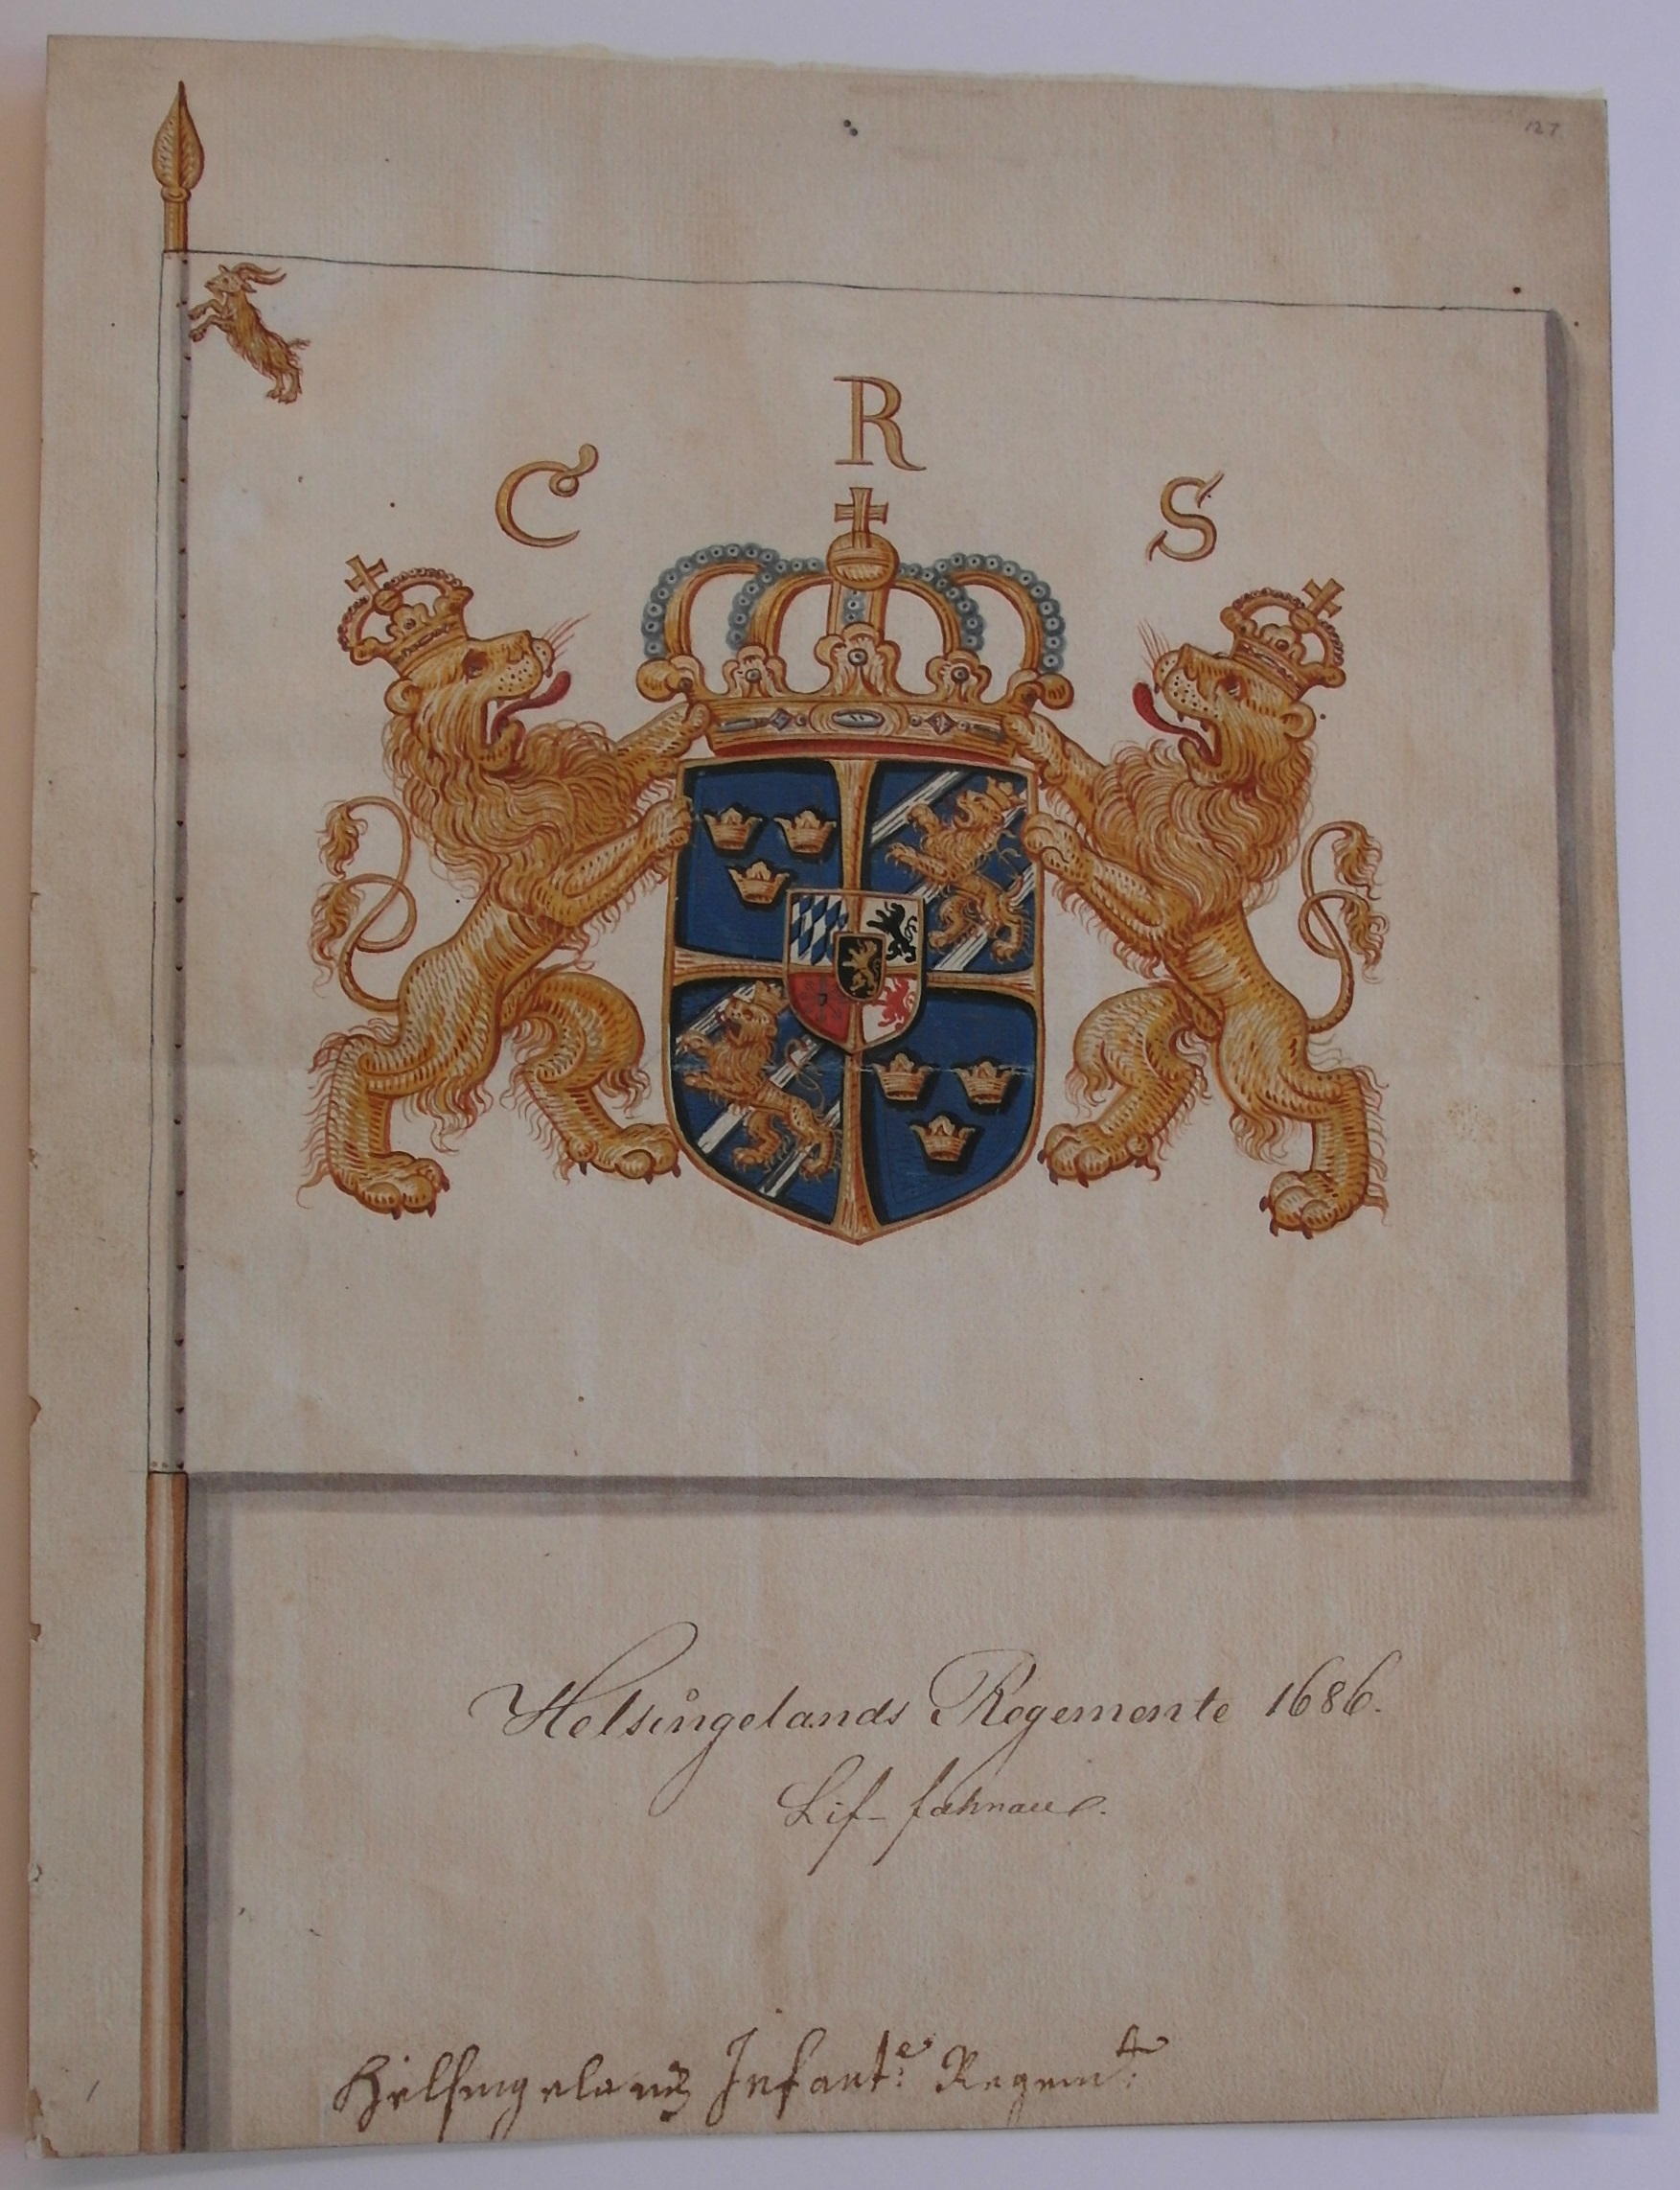 127
C R S
Helsingelands Regemente 1686.
Lif-fahnan.
Helsingelands Infant:e Regem:t